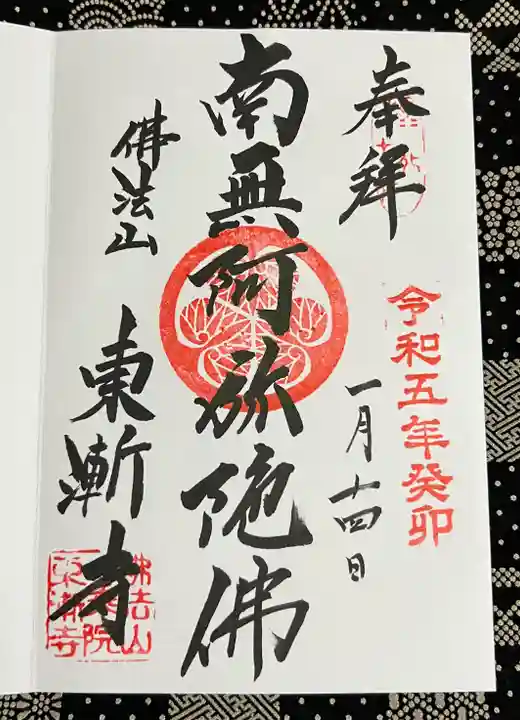 奉拜
令和五年癸卯
一月十四日
南無阿弥陀佛
佛法山
東漸寺
佛法山
東漸寺